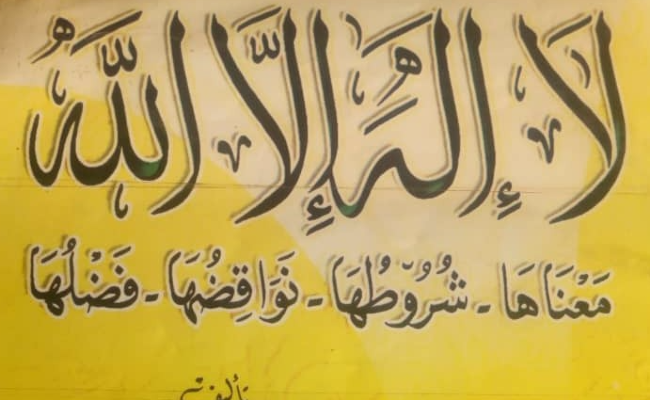 لَا إِلٰهَ إِلَّا اللهُ
مَعْنَاهَا - شُرُوطُهَا - نَوَاقِضُهَا - فَضْلُهَا
تأليف